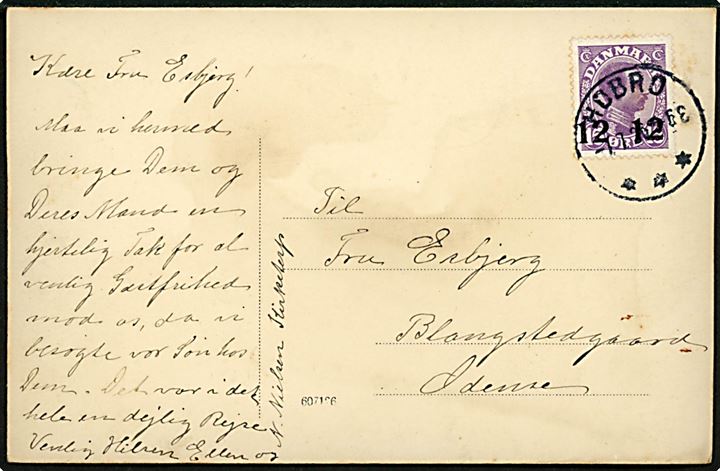 Kære Fru Esbjerg!
Maa vi hermed
bringe Dem og
Deres Mand en
hjertelig Tak for al
venlig Gæstfrihed
mod os, da vi
besøgte vor Søn hos
Dem. Det var i det
hele en dejlig Rejse
Venlig Hilsen Ellen og
N. Nielsen
607106
Til
Fru Esbjerg
Blangstedgaard
Odense
DANMARK
12 12
HOBRO